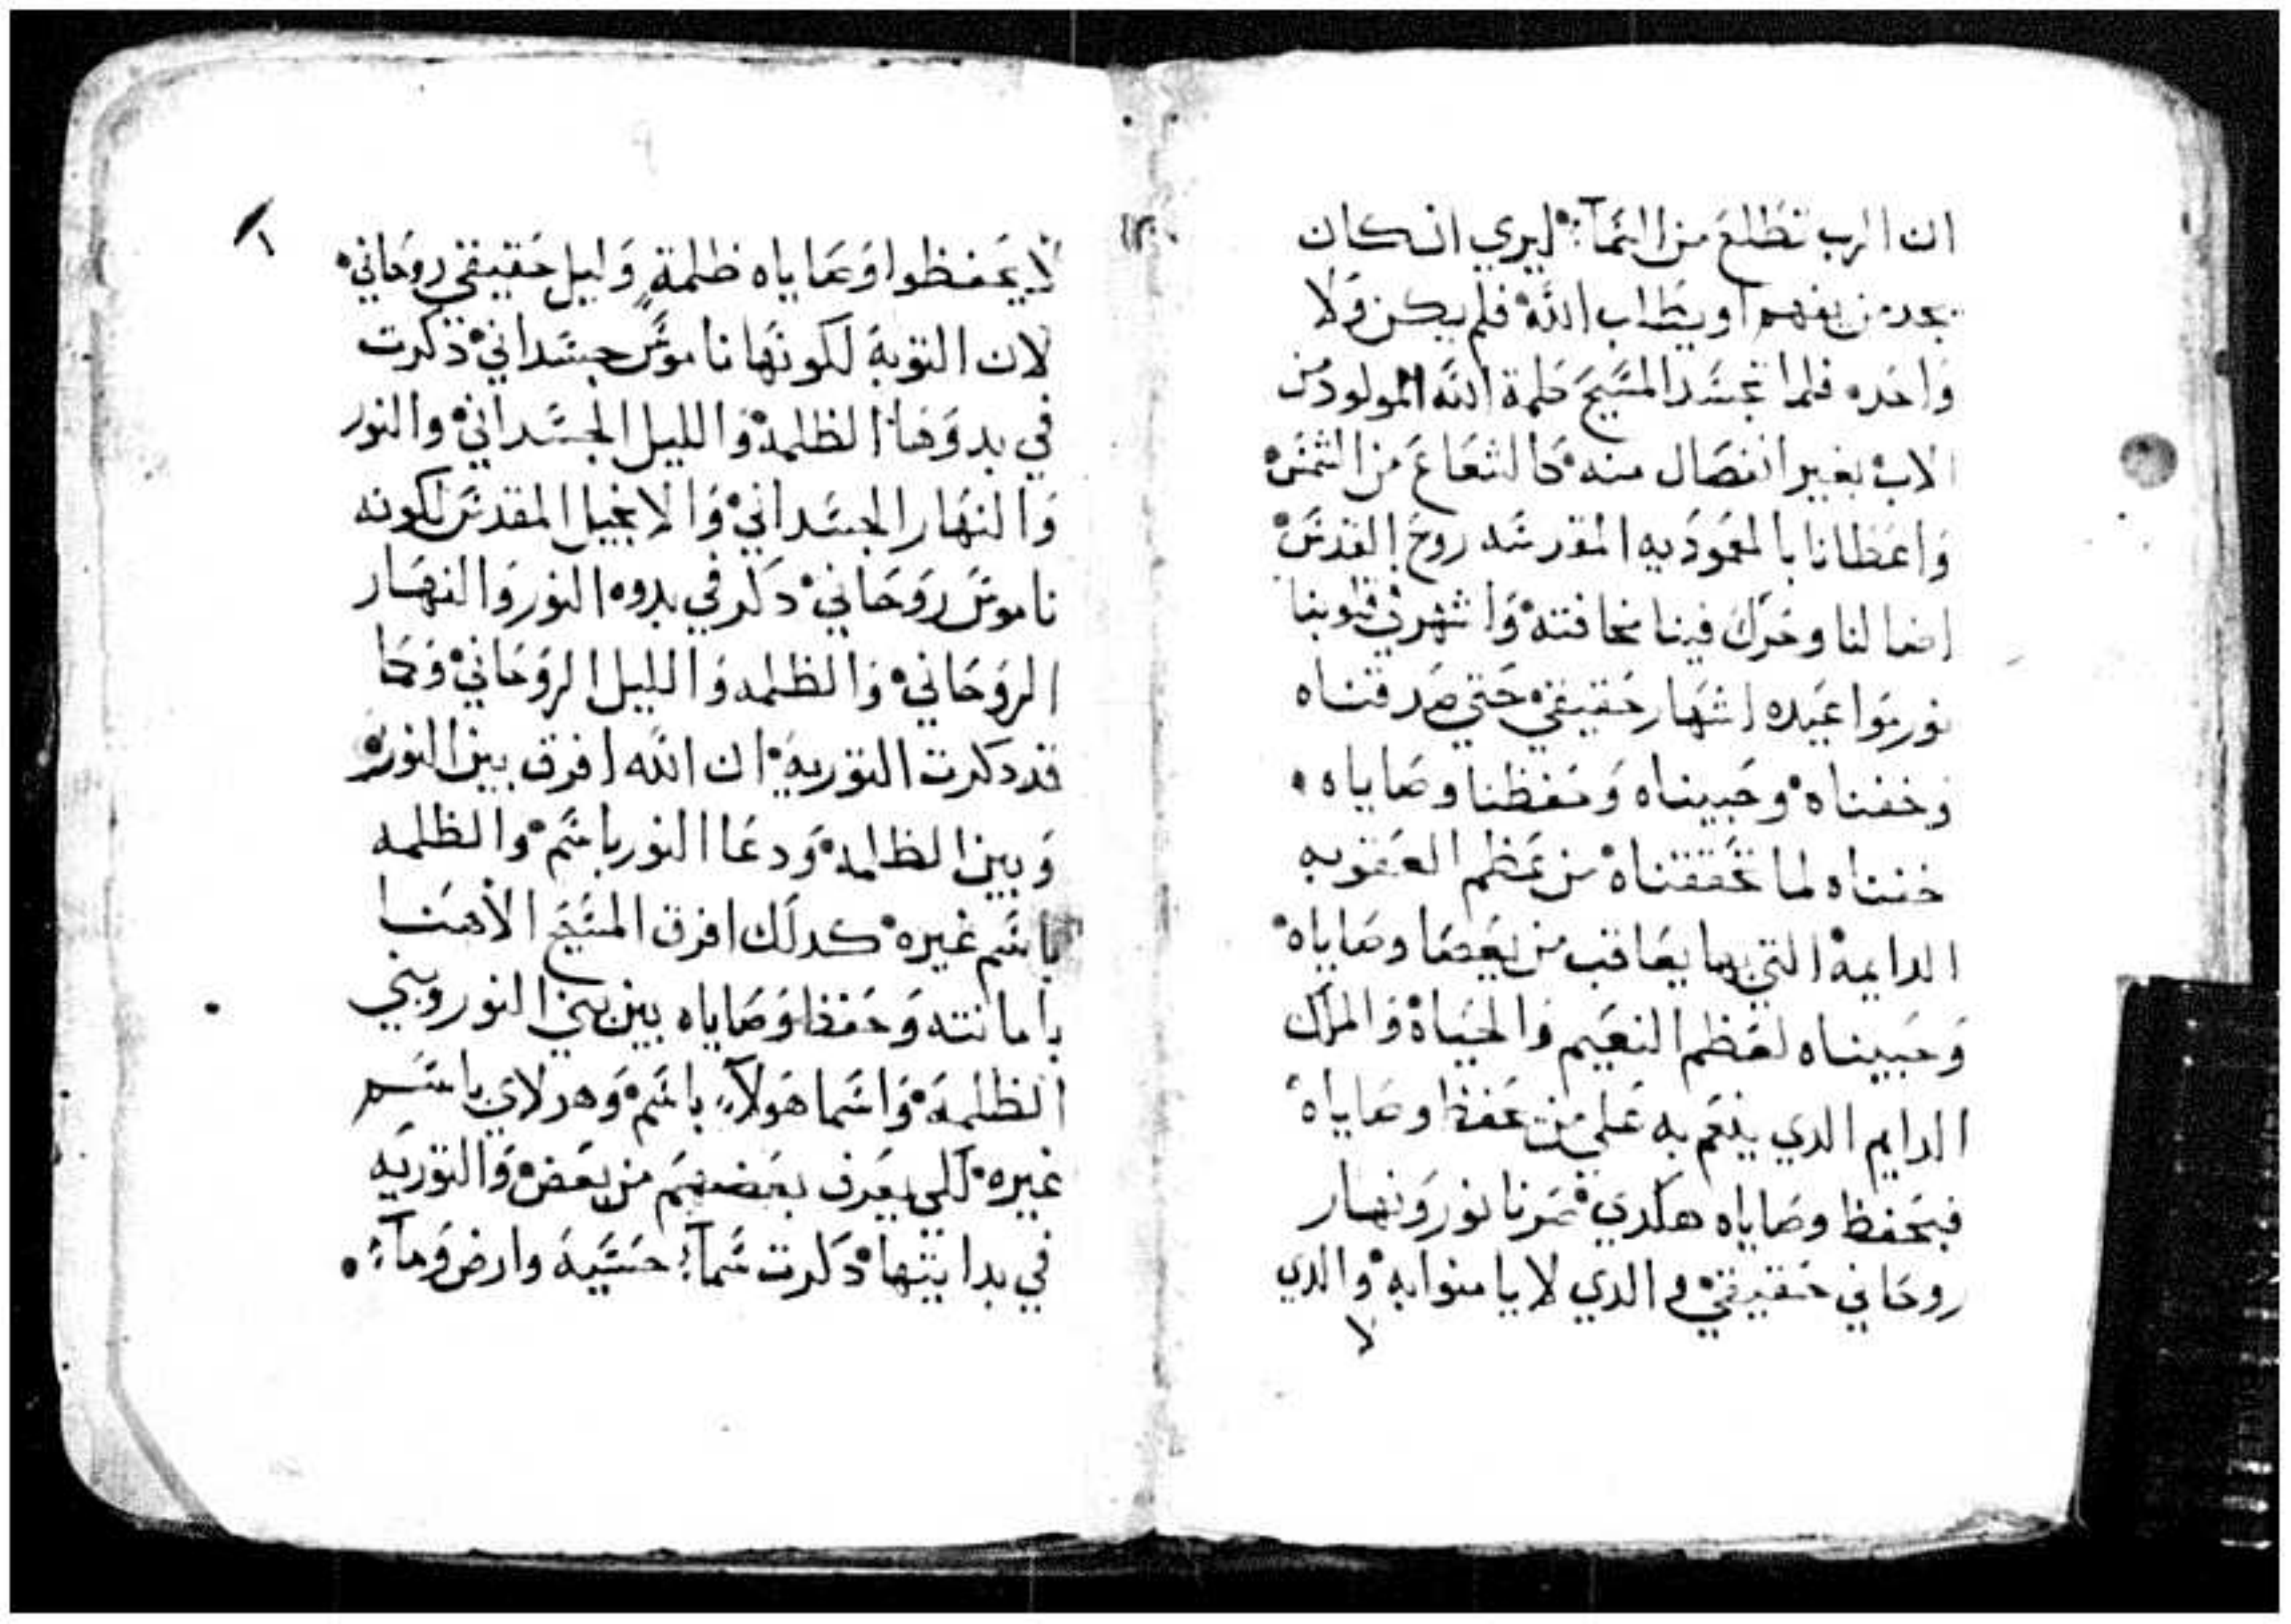 ان الرب تطلع من السماء ليري ان كان
يجد من يفهم او يطلب الله فلم يكن ولا
واحده فلما تجسد المسيح كلمة الله المولود من
الاب بغير انفصال منه كالشعاع من الشمس
واعطانا بالمعموديه المقدسه روح القدس
اضا لنا وحرك فينا مخافته واشهر في قلوبنا
نور مواعيده اشهار حقيقي حتي صدقناه
وخفناه وحبيناه وحفظنا وصاياه
خفناه لما تحققناه من عظم العقوبه
الدايمة التي بها يعاقب من يعصا وصاياه
وحبيناه لعظم النعيم والحياة والملك
الدايم الدي ينعم به علي من حفظ وصاياه
فبحفظ وصاياه هكدي صرنا نور ونهار
روحاني حقيقي والدي لا يامنوا به والدي
لا
لا يحفظوا وصاياه ظلمة وليل حقيقي روحاني
لان التورية لكونها ناموس جسداني دكرت
في بدوها الظلمة والليل الجسداني والنور
والنهار الجسداني والانجيل المقدس لكونه
ناموس روحاني دكر في بدوه النور والنهار
الروحاني والظلمه والليل الروحاني وكما
قد دكرت التوريه ان الله افرق بين النور
وبين الظلمة ودعا النور باسم والظلمه
باسم غيره كدلك افرق المسيح الاهنا
بامانته وحفظ وصاياه بين بني النور وبني
الظلمة واسما هولاء باسم وهولاي باسم
غيره لكي يعرف بعضهم من بعض والتوريه
في بدايتها دكرت سماء حسية وارض وماء